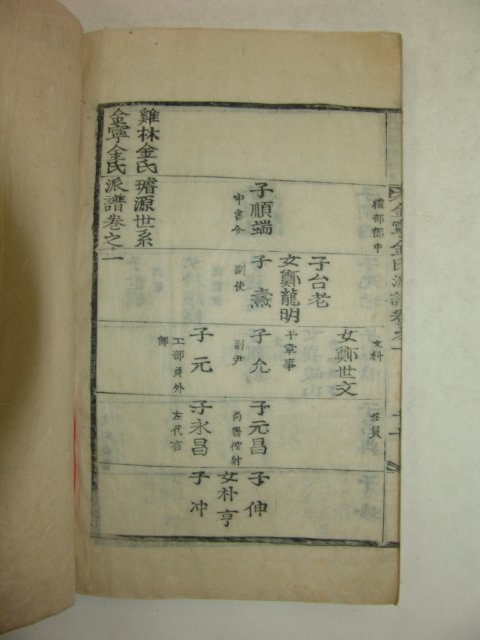 金寧金氏派譜卷之一
禮部郎中
文科
生員
子順端
中書令
子台老
女鄭龍明
平章事
子𤋮
副使
女鄭世文
子允
副尹
子元
工部員外郎
子元昌
尚書僕射
子永昌
左代言
子伸
女朴亨
子冲
雞林金氏璿源世系
金寧金氏派譜卷之一